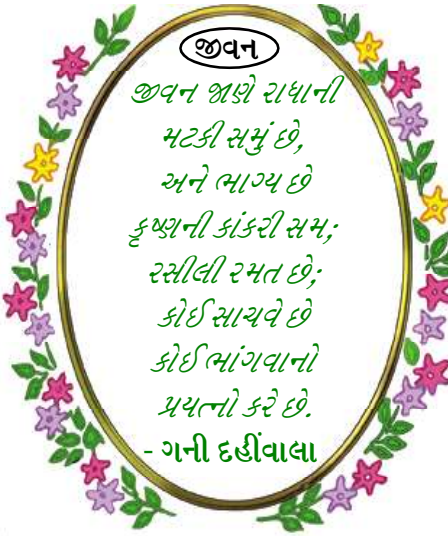 જીવન
જીવન જાણે રાધાની
મટકી સમું છે,
અને ભાગ્ય છે
કૃષ્ણની કાંકરી સમ;
રસીલી રમત છે;
કોઈ સાચવે છે
કોઈ ભાંગવાનો
પ્રયત્નો કરે છે.
- ગની દહીંવાલા